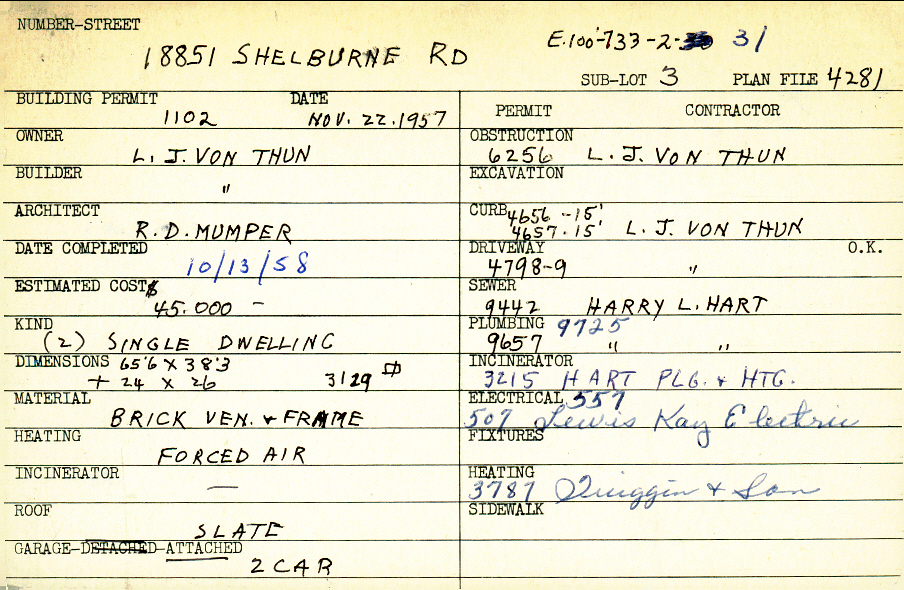 NUMBER-STREET
18851 SHELBURNE RD
E.100-733-2- 31
SUB-LOT 3 PLAN FILE 4281
BUILDING PERMIT DATE
1102 NOV. 22.1957
OWNER
L. J. VON THUN
BUILDER
"
ARCHITECT
R.D. MUMPER
DATE COMPLETED
10/13/58
ESTIMATED COST $
45.000 -
KIND
(2) SINGLE DWELLING
DIMENSIONS 65'6 X 38'3
+ 24 X 26 3129
MATERIAL
BRICK VEN. & FRAME
HEATING
FORCED AIR
INCINERATOR
—
ROOF
SLATE
GARAGE-DETACHED-ATTACHED
2 CAR
PERMIT CONTRACTOR
OBSTRUCTION
6256 L. J. VON THUN
EXCAVATION
CURB 4656 - 15'
4657 - 15' L. J. VON THUN
DRIVEWAY O.K.
4798-9 "
SEWER
9442 HARRY L. HART
PLUMBING 9725
9657 " "
INCINERATOR
3215 HART PLG. & HTG.
ELECTRICAL 557
507 Lewis Kay Electric
FIXTURES
HEATING
3787 Quiggin & Son
SIDEWALK